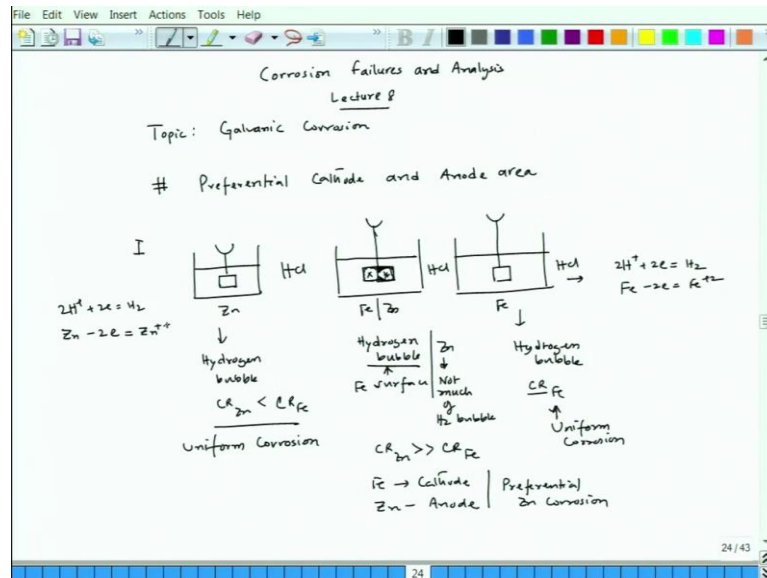 File Edit View Insert Actions Tools Help
B I
Corrosion Failures and Analysis
Lecture 8
Topic: Galvanic Corrosion
# Preferential Cathode and Anode area
I
HCl
HCl
HCl →
2H⁺ + 2e = H₂
Fe - 2e = Fe⁺²
Zn
Fe | Zn
Fe
2H⁺ + 2e = H₂
Zn - 2e = Zn⁺⁺
↓
Hydrogen
bubble
CR Zn < CR Fe
Uniform Corrosion
x x
Hydrogen
bubble
↑
Fe surface
Zn
↓
Not
much
of
H₂ bubble
CR Zn >> CR Fe
Fe → Cathode
Zn - Anode
Preferential
Zn corrosion
↓
Hydrogen
bubble
CR Fe
↑
Uniform
Corrosion
24 / 43
24